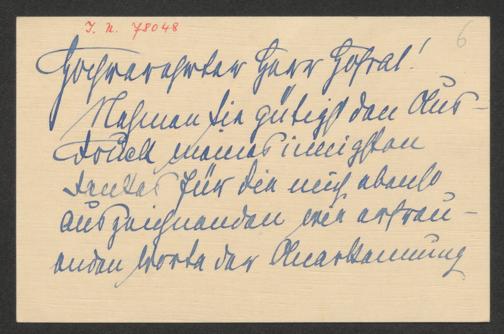 I. N. 78048
6
Hochverehrter Herr Hofrat!
Nehmen Sie gütigst den Aus-
druck meines innigsten
Dankes für die mich ebenso
auszeichnenden wie erfreu-
enden Worte der Anerkennung